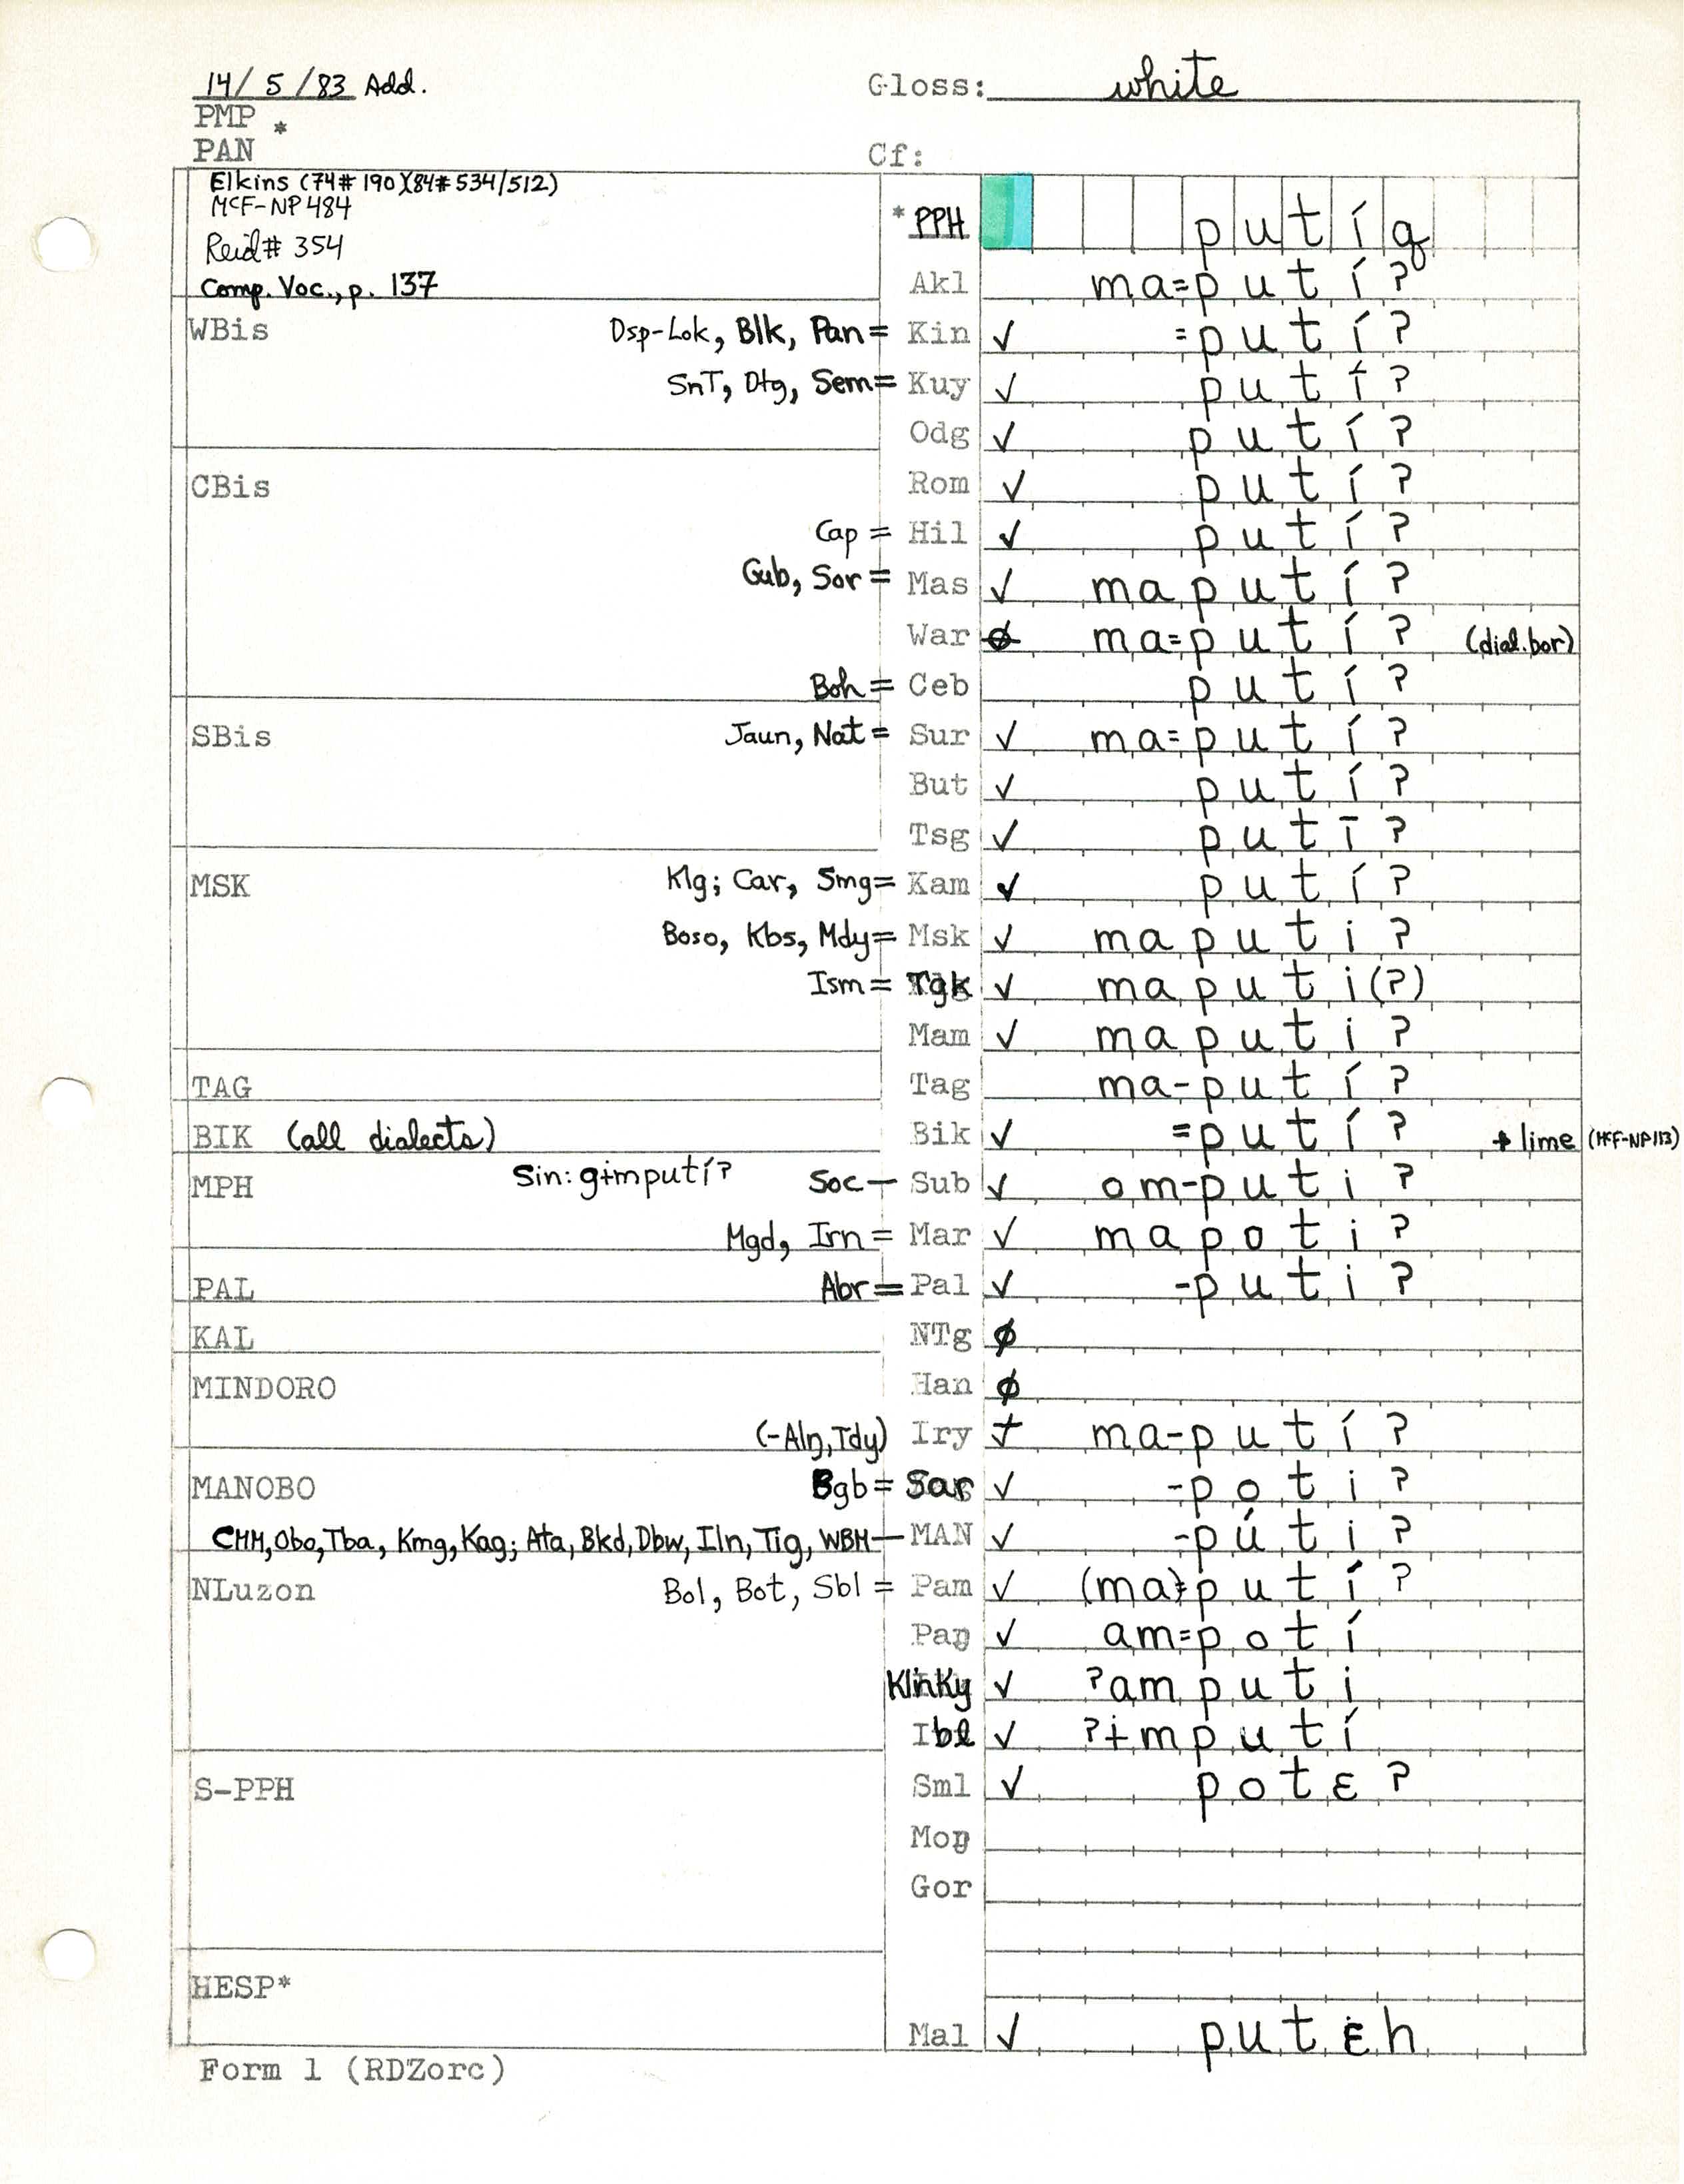 14/ 5 /83 Add. Gloss: white
PMP *
PAN Cf:
Elkins (74# 190)(84# 534/512)
McF-NP 484
Reid# 354
Comp. Voc., p. 137
* PPH putíq
Akl ma=putí?
WBis Dsp-Lok, Blk, Pan= Kin ✓ =putí?
SnT, Dtg, Sem= Kuy ✓ putí?
Odg ✓ putí?
CBis Rom ✓ putí?
Cap = Hil ✓ putí?
Gub, Sor = Mas ✓ maputí?
War ø ma=putí? (dial.bor)
Boh = Ceb putí?
SBis Jaun, Nat= Sur ✓ ma=putí?
But ✓ putí?
Tsg ✓ putī?
MSK Klg; Car, Smg= Kam ✓ putí?
Boso, Kbs, Mdy= Msk ✓ maputi?
Ism = Tgk ✓ maputi(?)
Mam ✓ maputi?
TAG Tag ma-putí?
BIK (all dialects) Bik ✓ =putí? → lime (McF-NP113)
MPH Sin: gɨmputí? Soc— Sub ✓ om-puti?
Mgd, Irn = Mar ✓ mapoti?
PAL Abr= Pal ✓ -puti?
KAL NTg ø
MINDORO Han ø
(-Alŋ,Tdy) Iry + ma-putí?
MANOBO Bgb = Sar ✓ -poti?
CMM, Obo, Tba, Kmg, Kag; Ata, Bkd, Dbw, Iln, Tig, WBM— MAN ✓ -púti?
NLuzon Bol, Bot, Sbl = Pam ✓ (ma)=putí?
Paŋ ✓ am=potí
Klnky ✓ ?amputi
Ibl ✓ ?ɨmputí
S-PPH Sml ✓ potɛ?
Moŋ
Gor
HESP*
Mal ✓ putɛh
Form 1 (RDZorc)